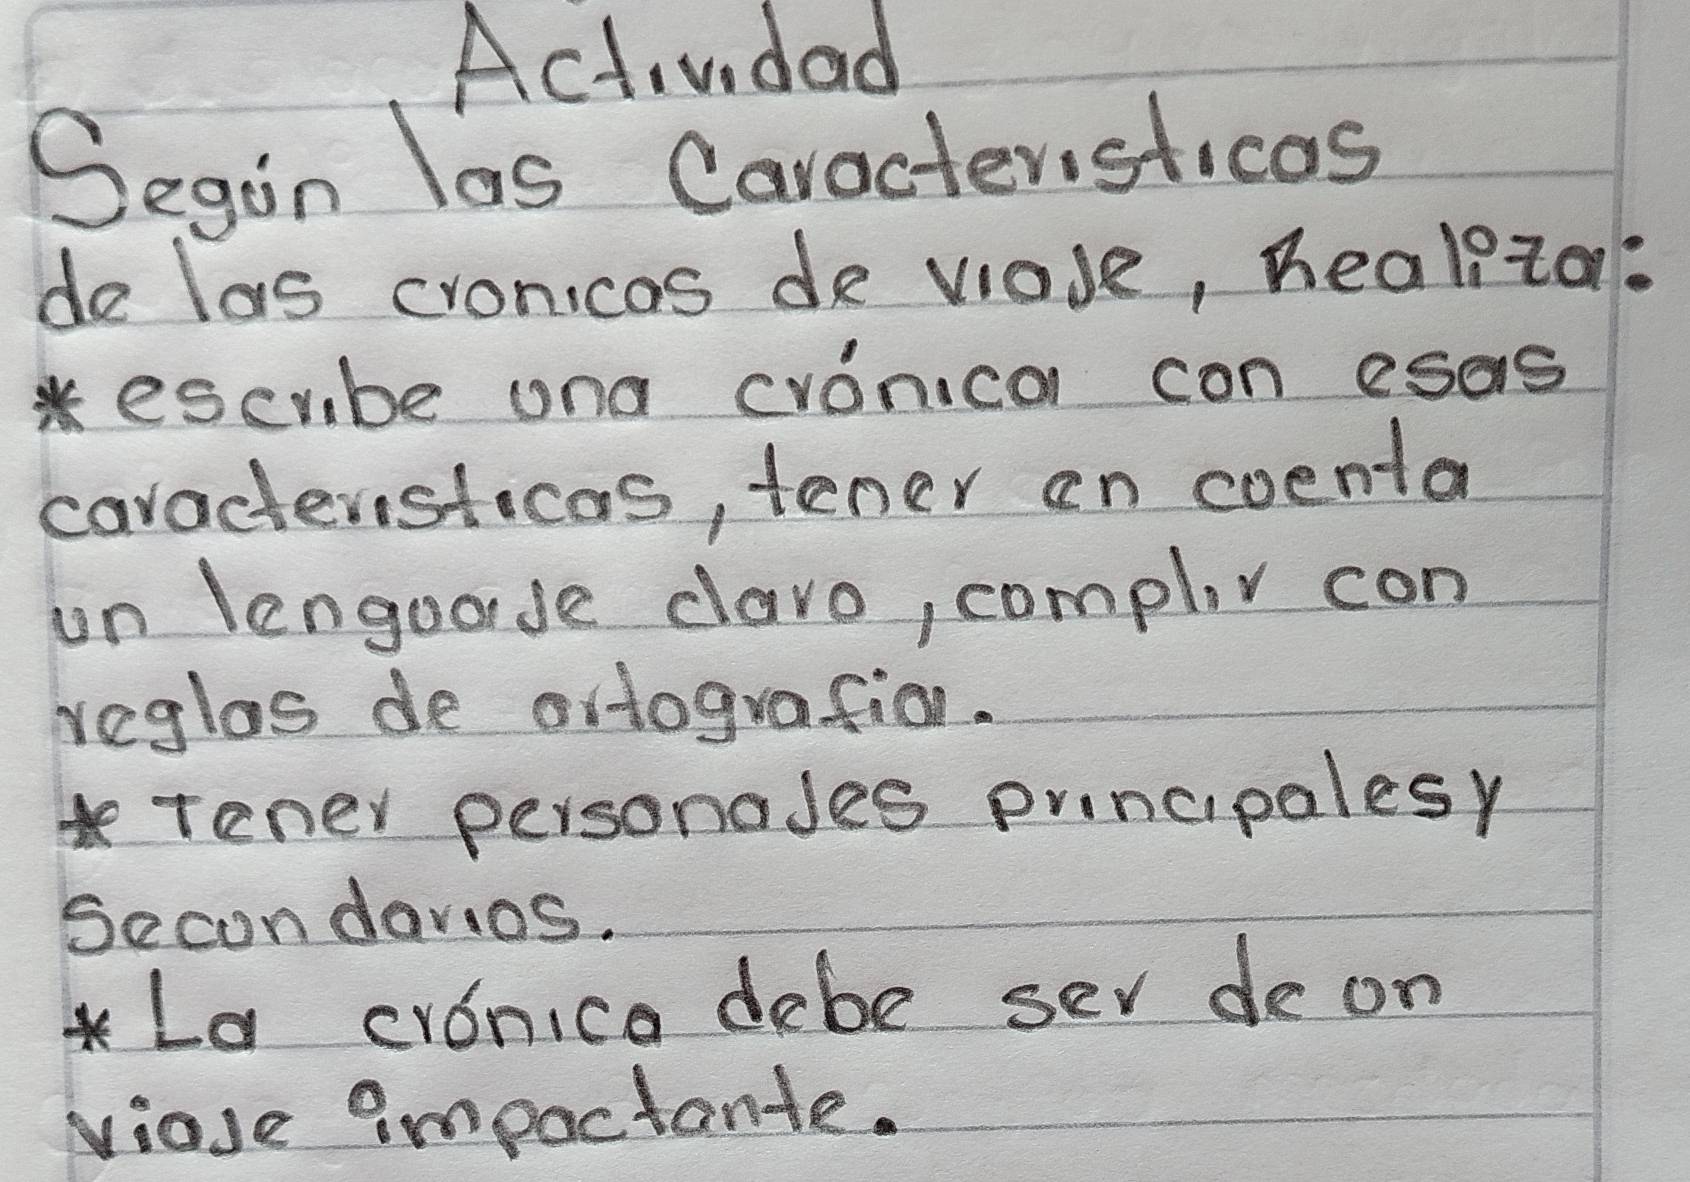 Actividad
Según las Caracteristicas
de las cronicas de viaje, Realiza:
* escribe una crónica con esas
caracteristicas, tener en cuenta
un lenguaje claro, complir con
reglas de ortografia.
* Tener personajes principales y
Secundarios.
* La crónica debe ser de un
viaje impactante.